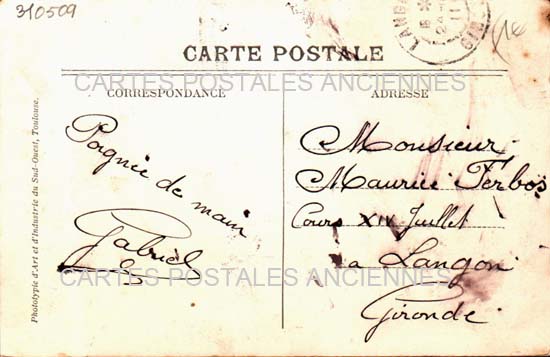 310509
LANGON
15 *
24 -
11
GIR
CARTE POSTALE
CARTES POSTALES ANCIENNES
CORRESPONDANCE
ADRESSE
Poignée de main
Gabriel
Monsieur
Maurice Ferbos
Cours XIV Juillet
à Langon
Gironde
CARTES POSTALES ANCIENNES
Phototypie d'Art et d'Industrie du Sud-Ouest, Toulouse.